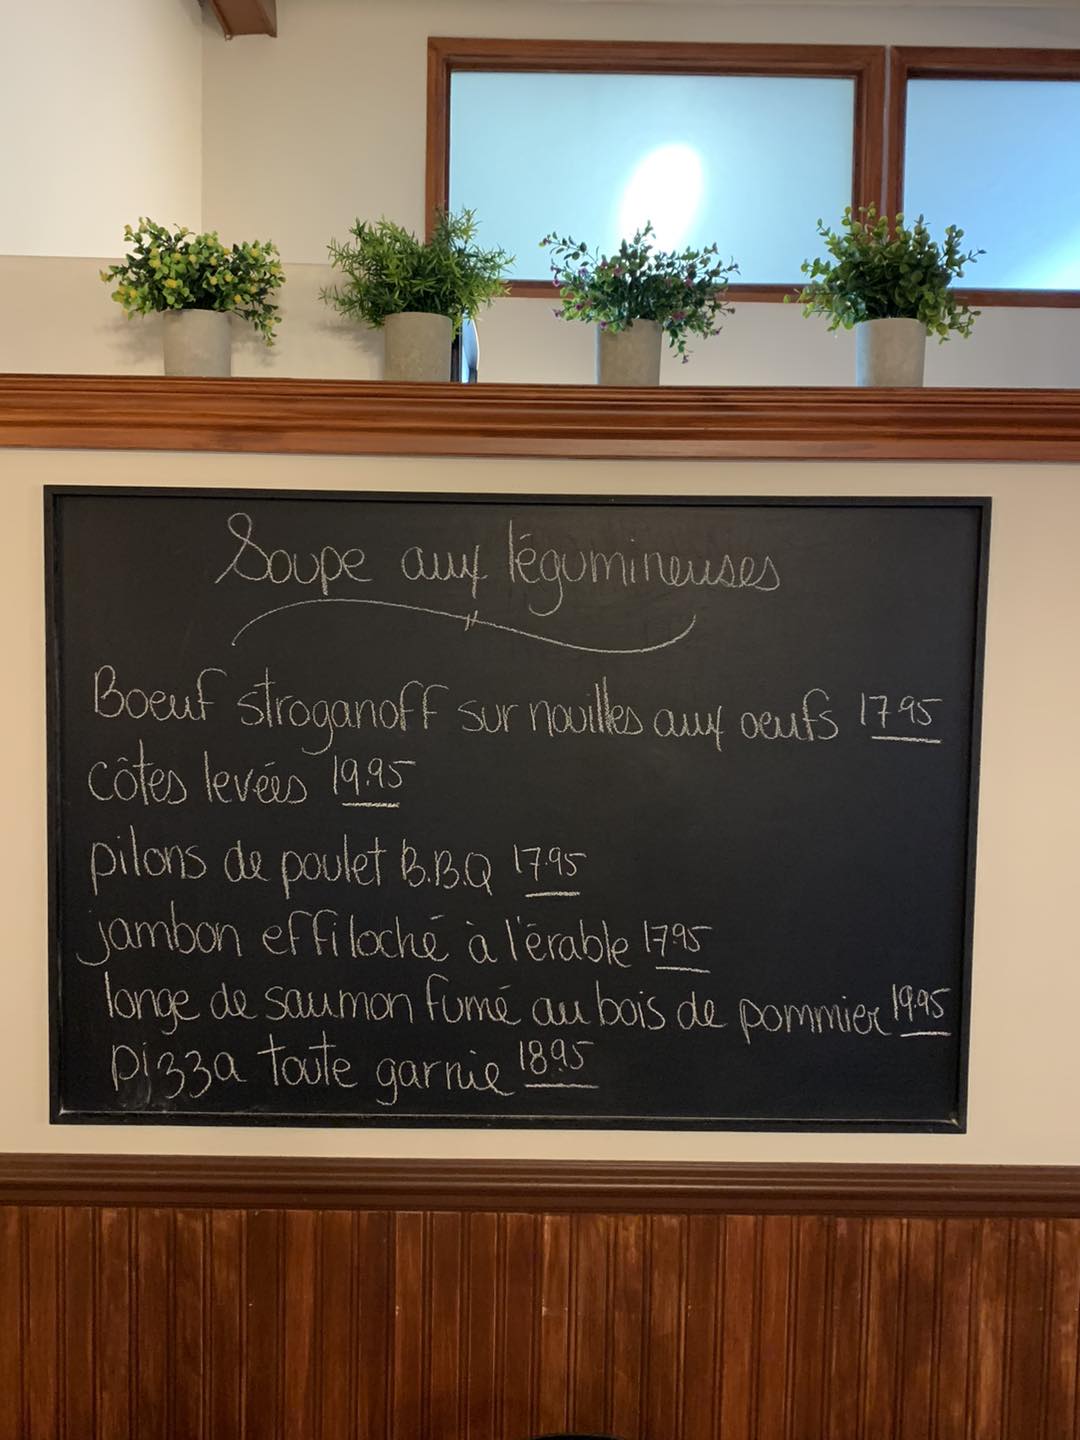 Soupe aux légumineuses
Boeuf stroganoff sur nouilles aux oeufs 17.95
côtes levées 19.95
pilons de poulet B.B.Q 17.95
jambon effiloché à l'érable 17.95
longe de saumon fumé au bois de pommier 19.95
pizza toute garnie 18.95